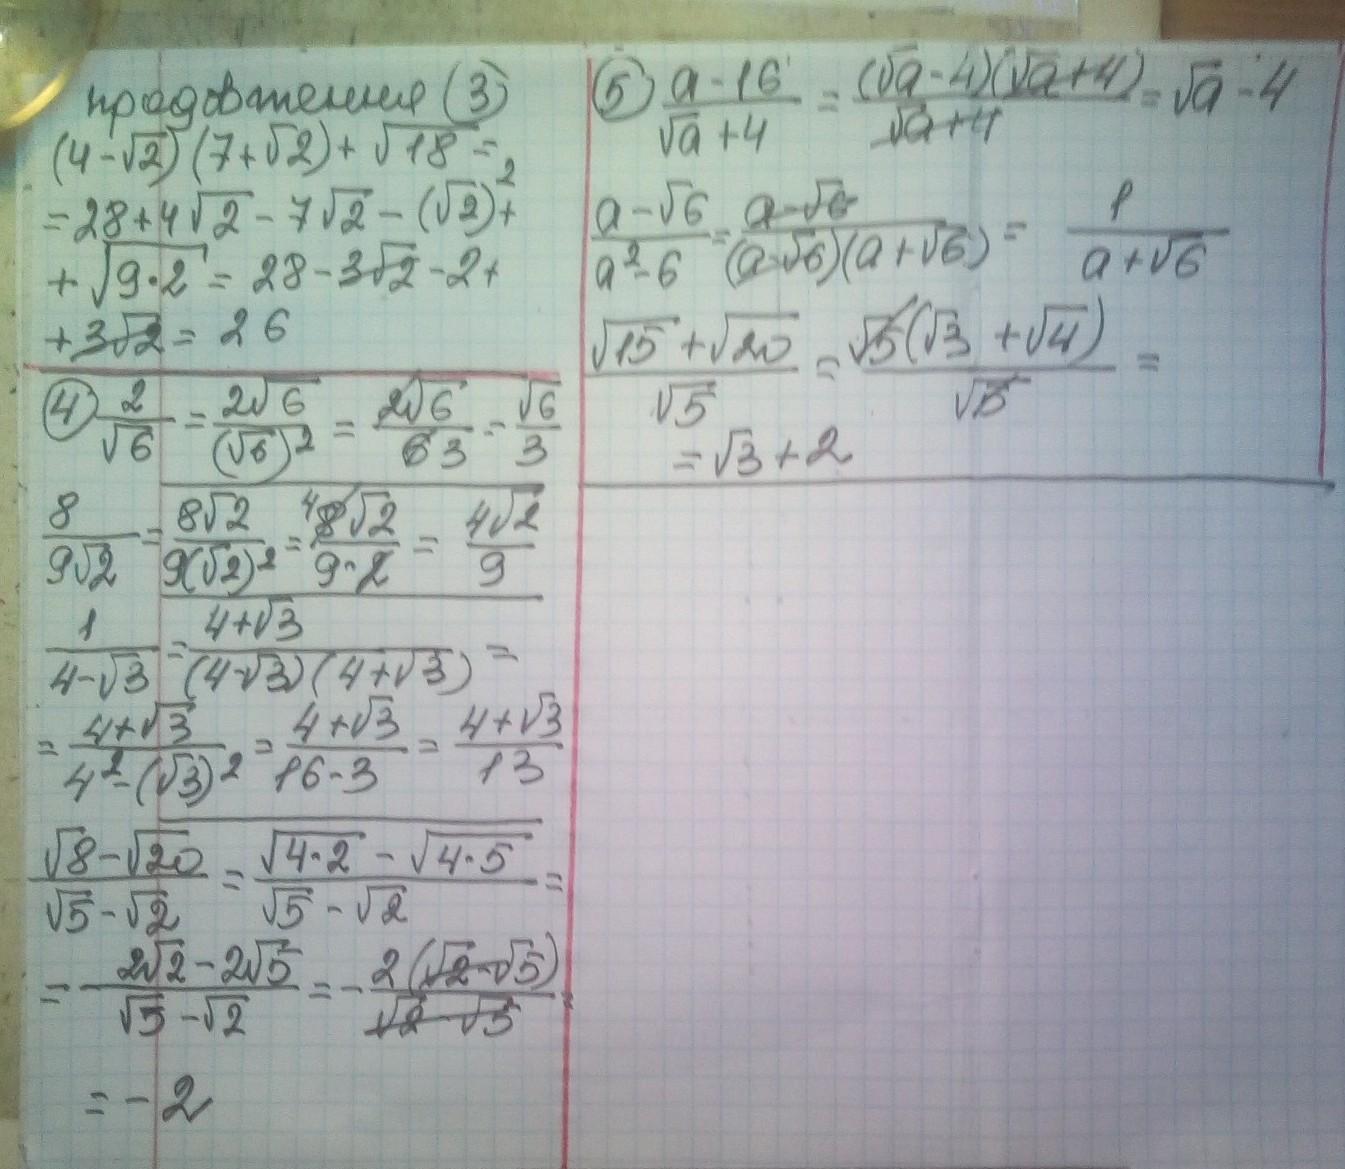 продовження (3)
(4-√2)(7+√2)+√18=
=28+4√2-7√2-(√2)²+
+√9·2=28-3√2-2+
+3√2=26
④ 2/√6=2√6/(√6)²=2√6/6 3=√6/3
8/9√2=8√2/9(√2)²=4 8√2/9·2=4√2/9
1/4-√3=4+√3/(4-√3)(4+√3)=
=4+√3/4²-(√3)²=4+√3/16-3=4+√3/13
√8-√20/√5-√2=√4·2-√4·5/√5-√2=
=-2√2-2√5/√5-√2=-2(√2-√5)/√2-√5=
=-2
⑤ a-16/√a+4=(√a-4)(√a+4)/√a+4=√a-4
a-√6/a²-6=a-√6/(a-√6)(a+√6)=1/a+√6
√15+√20/√5=√5(√3+√4)/√5=
=√3+2